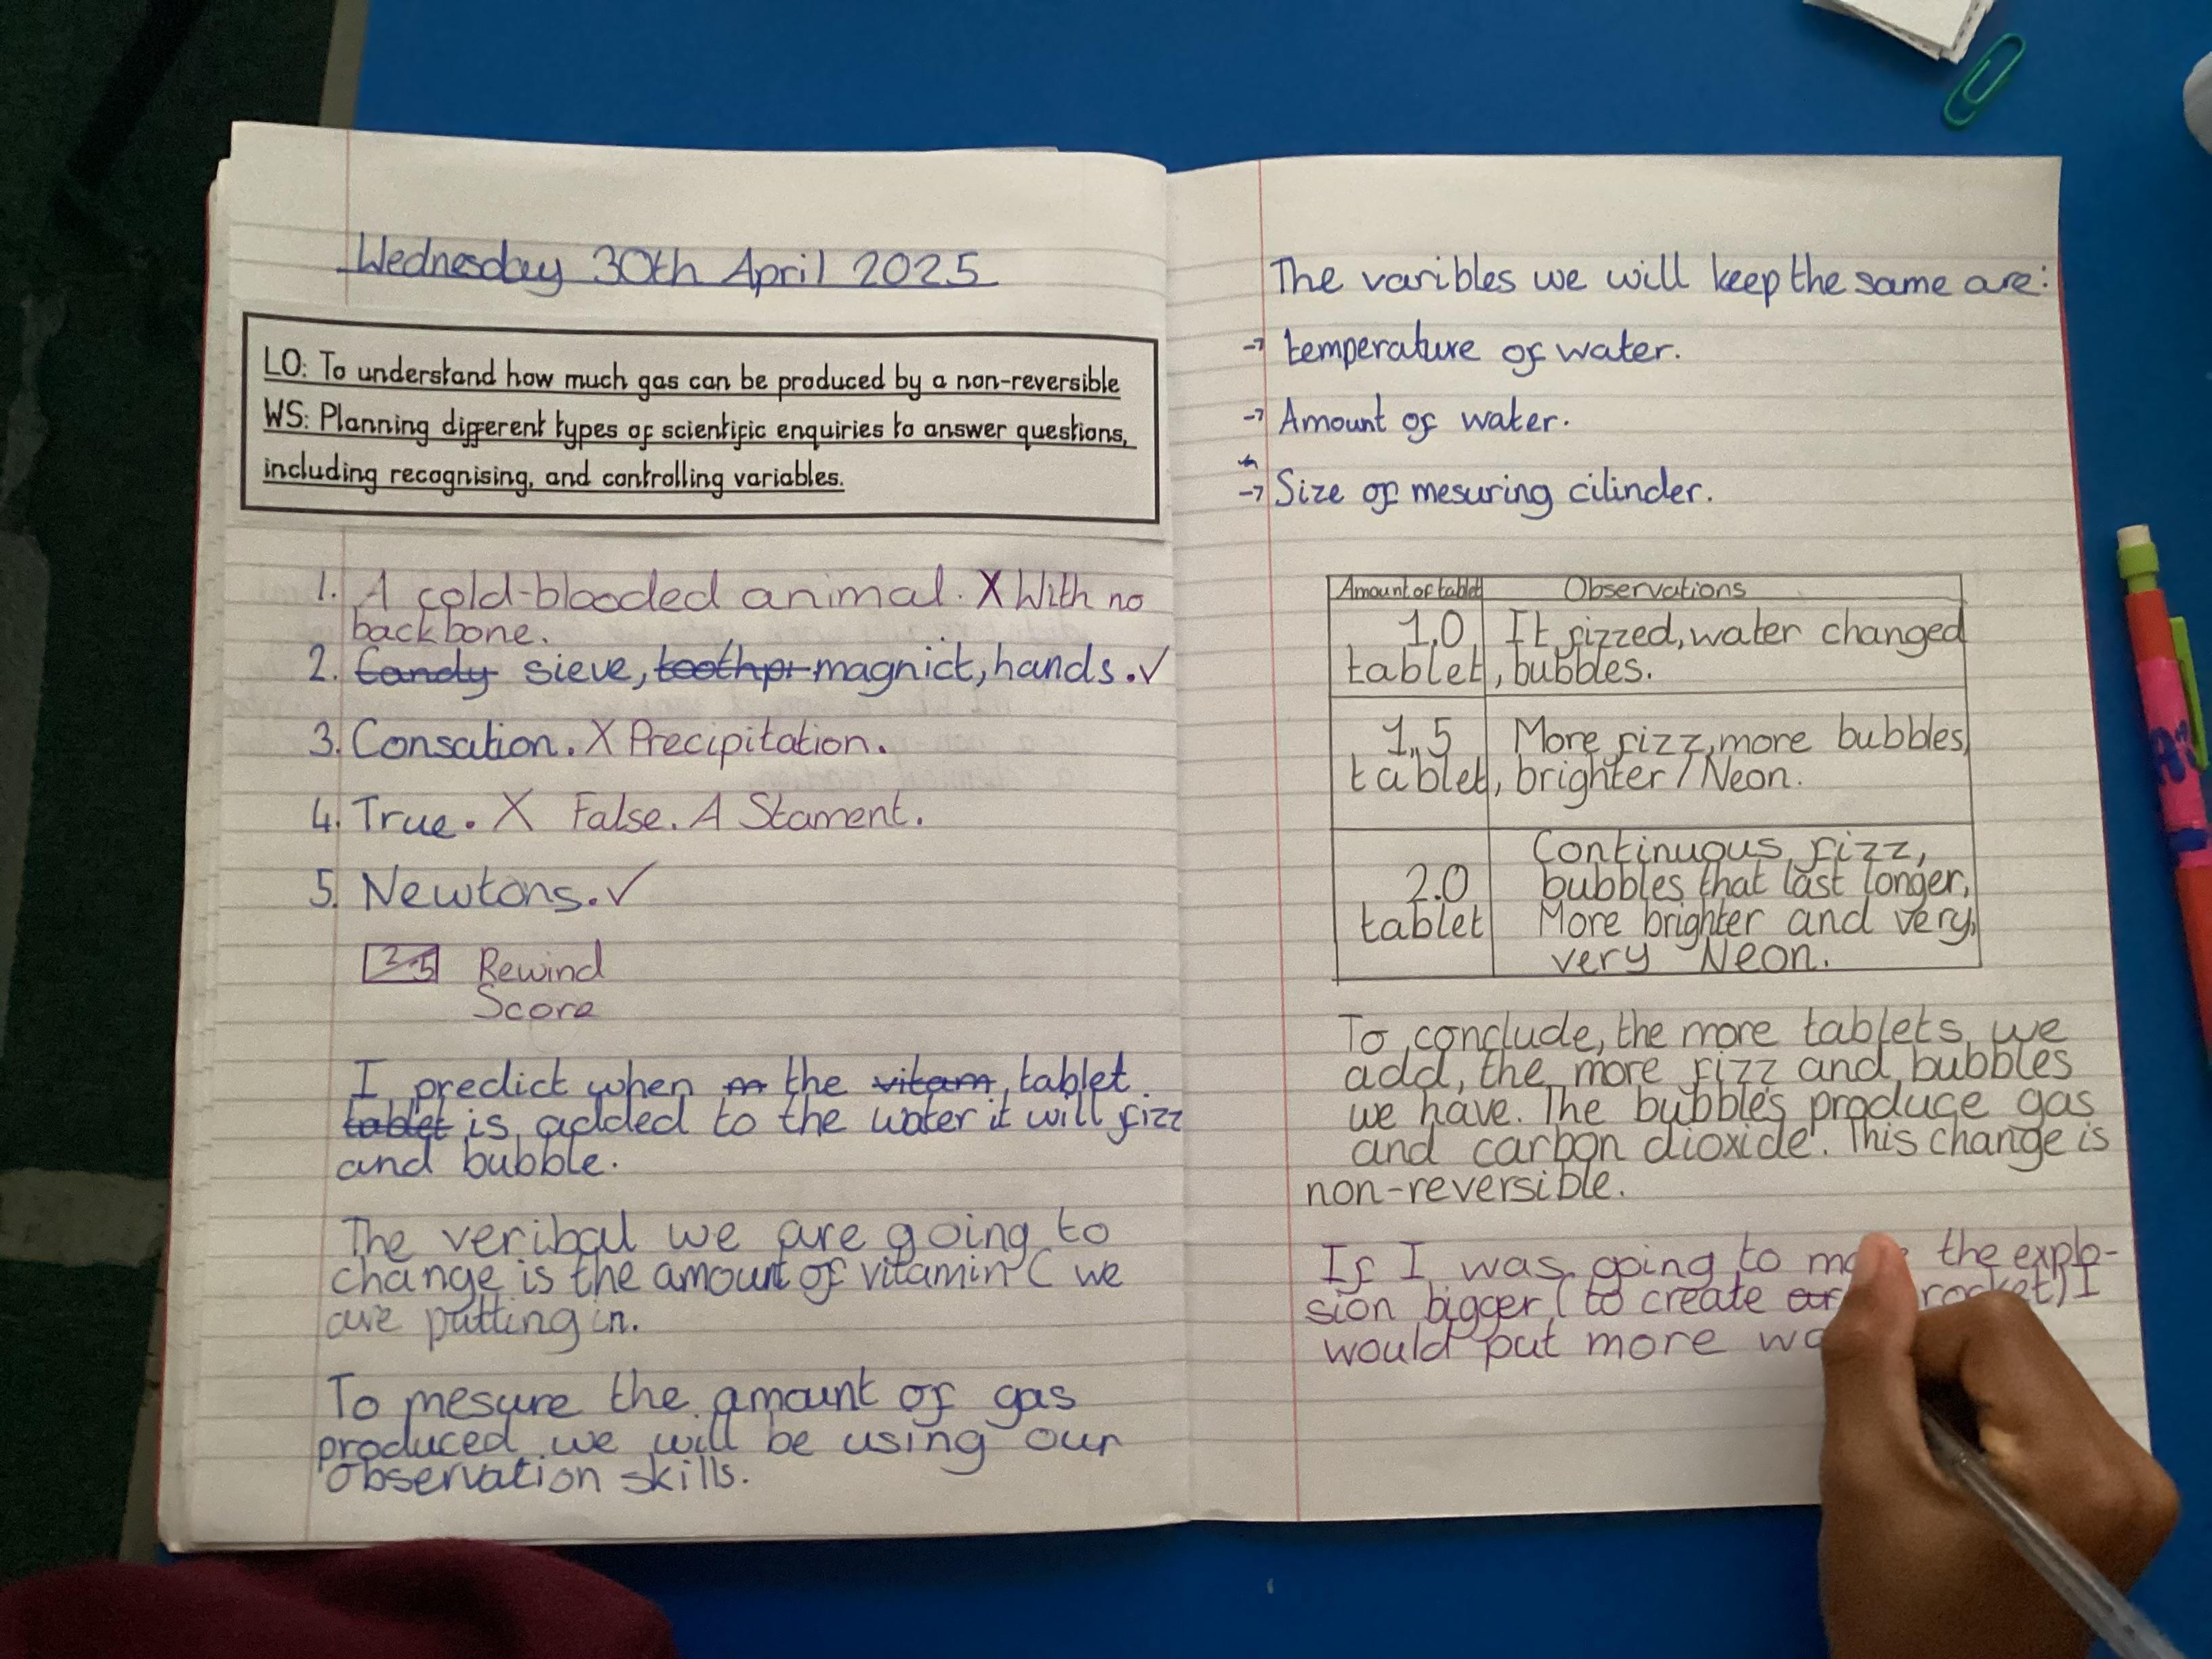 Wednesday 30th April 2025
LO: To understand how much gas can be produced by a non-reversible
WS: Planning different types of scientific enquiries to answer questions,
including recognising, and controlling variables.
1. A cold-blooded animal. X With no
backbone.
2. Candy sieve, toothpi magnict, hands. ✓
3. Consation. X Precipitation.
4. True. X False. A Stament.
5. Newtons. ✓
Rewind
Score
I predict when m the vitam tablet
tablet is added to the water it will fizz
and bubble.
The veribal we are going to
change is the amount of vitamin C we
are putting in.
To mesure the amount of gas
produced we will be using our
observation skills.
The varibles we will keep the same are:
→ temperature of water.
→ Amount of water.
→ Size of mesuring cilinder.
Amount of tablet Observations
1,0 It fizzed, water changed
tablet, bubbles.
1,5 More fizz, more bubbles,
tablet, brighter/Neon.
Continuous fizz,
2.0 bubbles that last longer,
tablet More brighter and very,
very Neon.
To conclude, the more tablets we
add, the more fizz and bubbles
we have. The bubbles produce gas
and carbon dioxide. This change is
non-reversible.
If I was going to the explo-
sion bigger (to create rocket) I
would put more